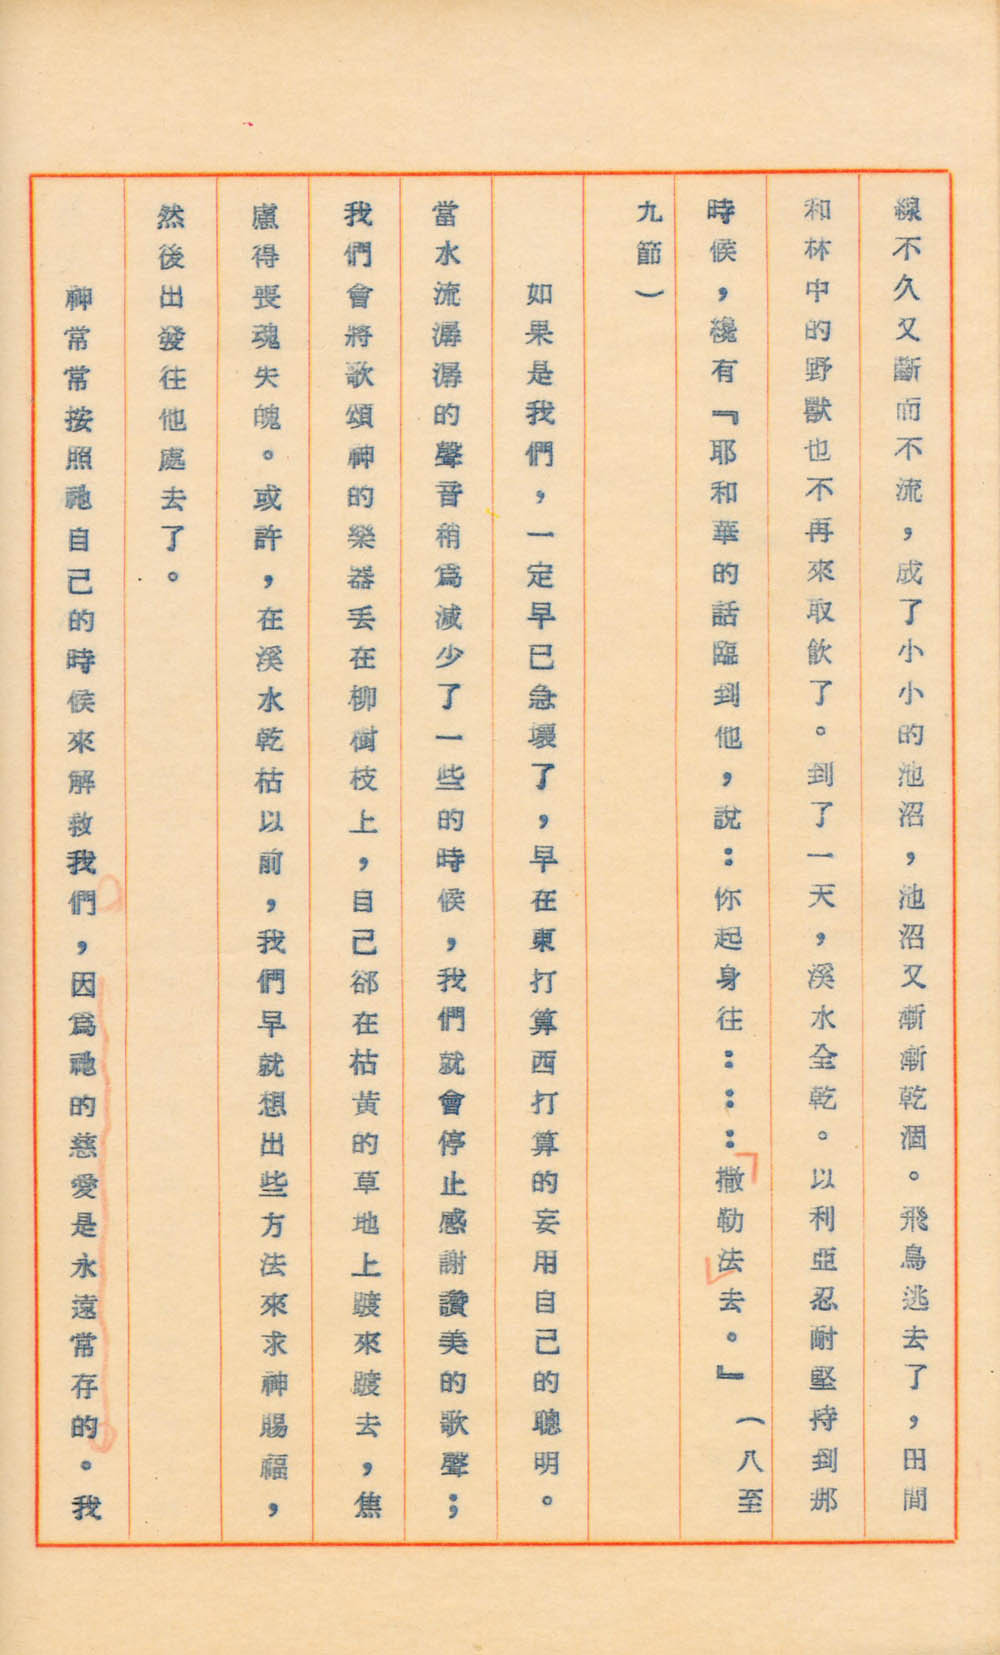 線不久又斷而不流，成了小小的池沼，池沼又漸漸乾涸。飛鳥逃去了，田間
和林中的野獸也不再來取飲了。到了一天，溪水全乾。以利亞忍耐堅持到那
時候，纔有『耶和華的話臨到他，說：你起身往：：：撒勒法去。』（八至
九節）
如果是我們，一定早已急壞了，早在東打算西打算的妄用自己的聰明。
當水流潺潺的聲音稍爲減少了一些的時候，我們就會停止感謝讚美的歌聲；
我們會將歌頌神的樂器丢在柳樹枝上，自己郤在枯黃的草地上踱來踱去，焦
慮得喪魂失魄。或許，在溪水乾枯以前，我們早就想出些方法來求神賜福，
然後出發往他處去了。
神常常按照祂自己的時候來解救我們，因爲祂的慈愛是永遠常存的。我